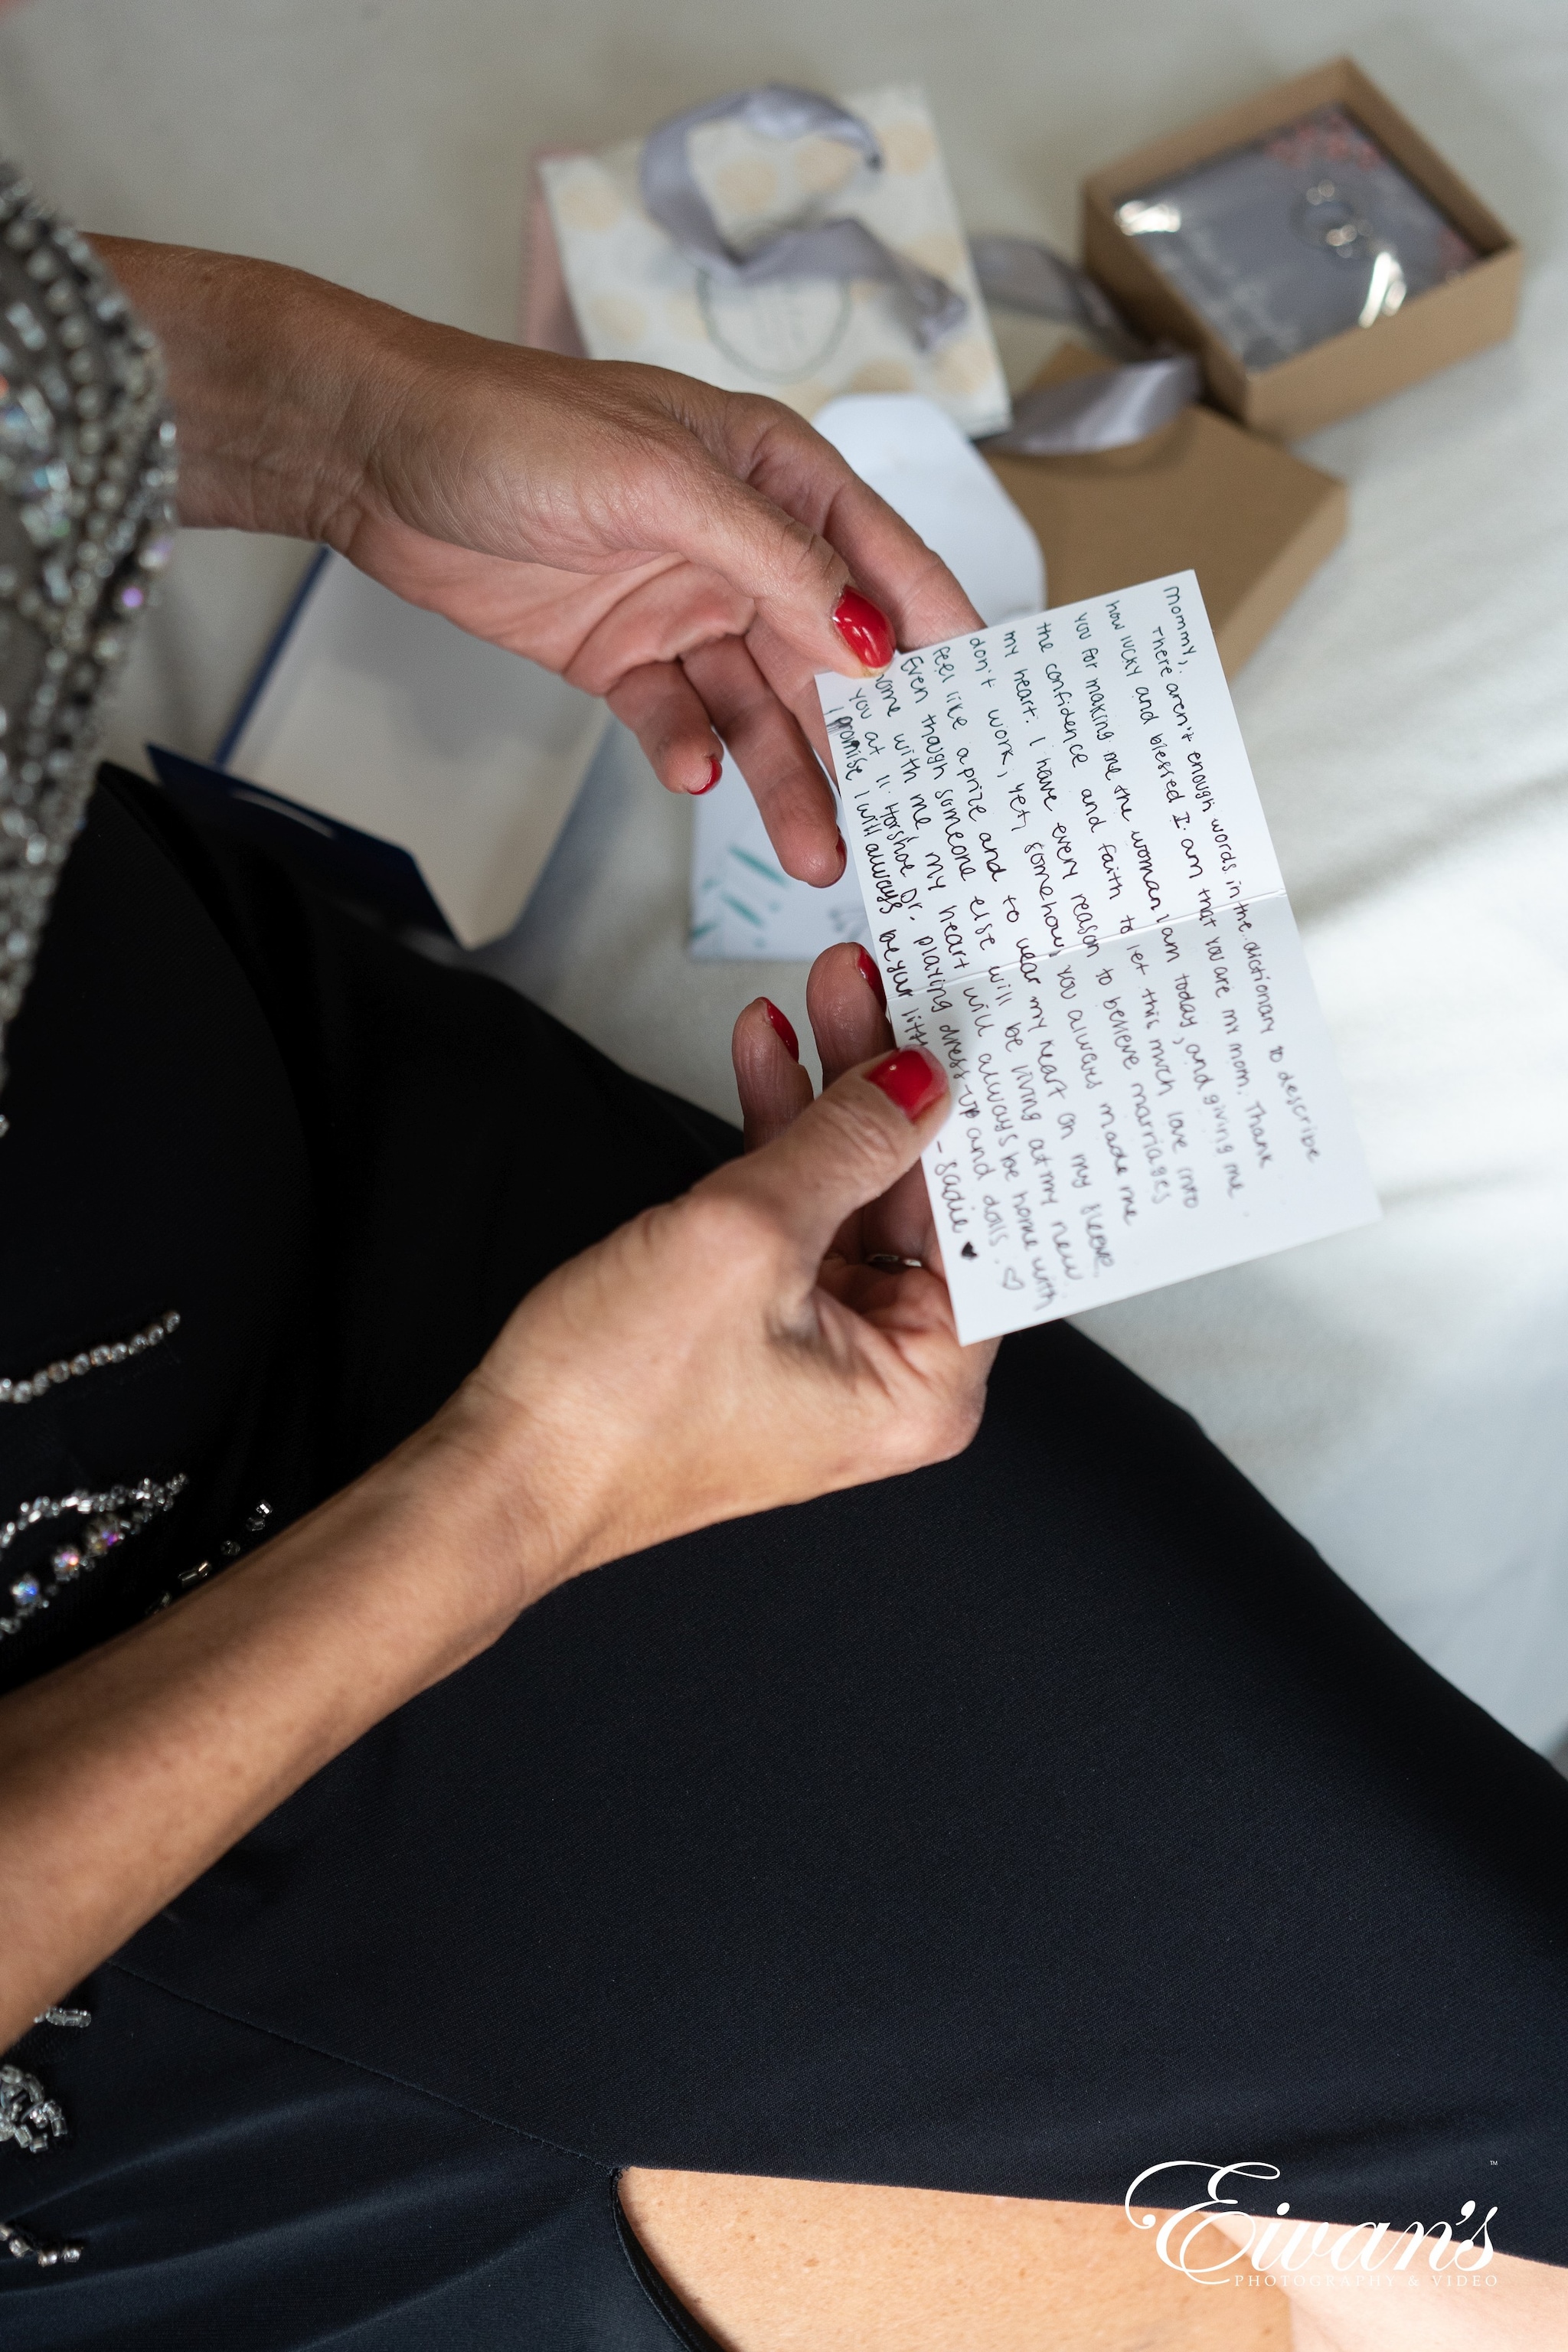 Mommy,
There aren't enough words in the dictionary to describe
how lucky and blessed I am that you are my mom. Thank
you for making me the woman I am today, and giving me
the confidence and faith to let this much love into
my heart. I have every reason to believe marriages
don't work, yet, somehow, you always made me
feel like a prize and to wear my heart on my sleeve.
Even though someone else will be living at my new
home with me, my heart will always be home with
you at 11 Horshoe Dr. playing dress-up and dolls. ♡
I promise I will always be your little
- Sadie ♥
Eivan's
PHOTOGRAPHY & VIDEO
™